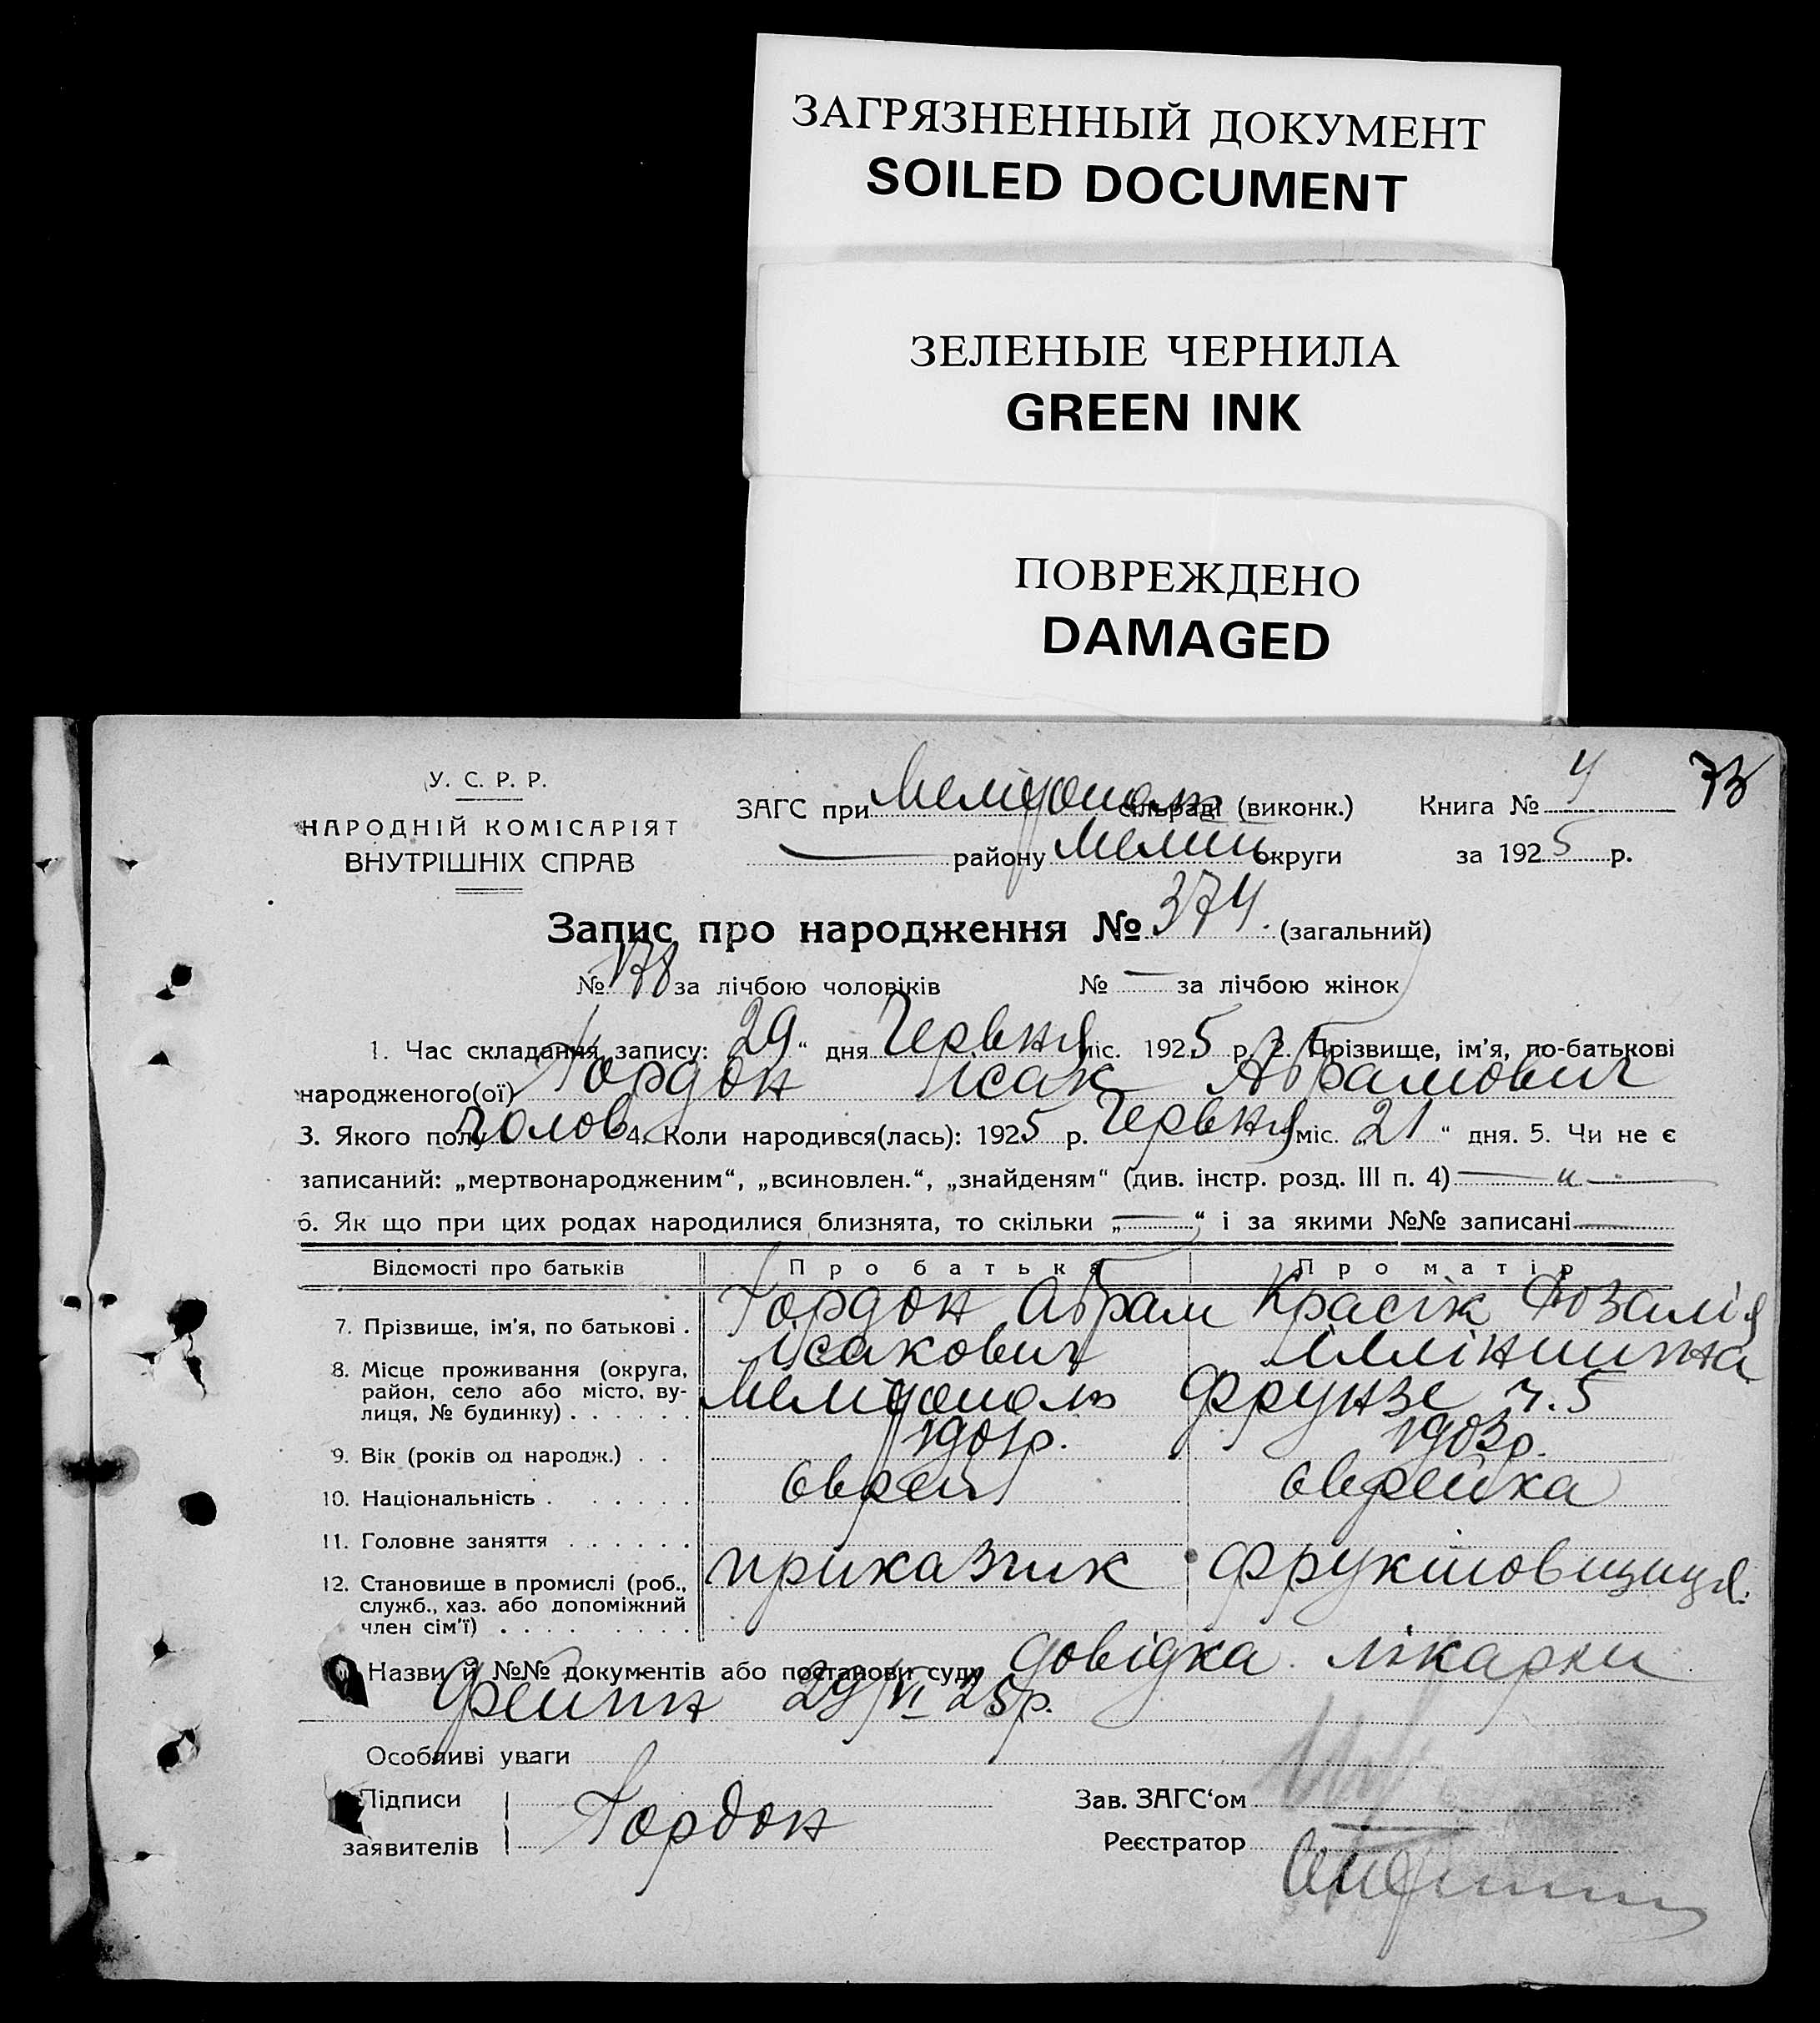 ЗАГРЯЗНЕННЫЙ ДОКУМЕНТ
SOILED DOCUMENT
ЗЕЛЕНЫЕ ЧЕРНИЛА
GREEN INK
ПОВРЕЖДЕНО
DAMAGED
73
У. С. Р. Р.
НАРОДНІЙ КОМІСАРІЯТ
ВНУТРІШНІХ СПРАВ
ЗАГС при Мелітополь сільраді (виконк.) Книга № 4
— району Меліт округи за 1925 р.
Запис про народження № 374. (загальний)
№ 178 за лічбою чоловіків № — за лічбою жінок
1. Час складання запису: „29“ дня Червня міс. 1925 р. 2. Прізвище, ім’я, по-батькові
народженого(ої) Гордон Ісак Абрамович
3. Якого полу чолов 4. Коли народився(лась): 1925 р. Червня міс. „21“ дня. 5. Чи не є
записаний: „мертвонародженим“, „всиновлен.“, „знайденям“ (див. інстр. розд. III п. 4) — „ —
6. Як що при цих родах народилися близнята, то скільки „—“ і за якими №№ записані —
Відомості про батьків Про батька Про матір
7. Прізвище, ім’я, по батькові . Гордон Абрам Ісакович Красік Розалія
8. Місце проживання (округа, район, село або місто, вулиця, № будинку) . . . . . . Мелітополь Фрунзе ч. 5
9. Вік (років од народж.) . . 1901р. 1903р.
10. Національність . . . . . . . єврей єврейка
11. Головне заняття . . . . . .
12. Становище в промислі (роб., служб., хаз. або допоміжний член сім’ї) . . . . . . . . приказчик фруктовщиця.
Назви й №№ документів або постанови суду довідка лікарки
29/VI 25р.
Особливі уваги
Підписи
заявителів Гордон
Зав. ЗАГС‘ом
Реєстратор